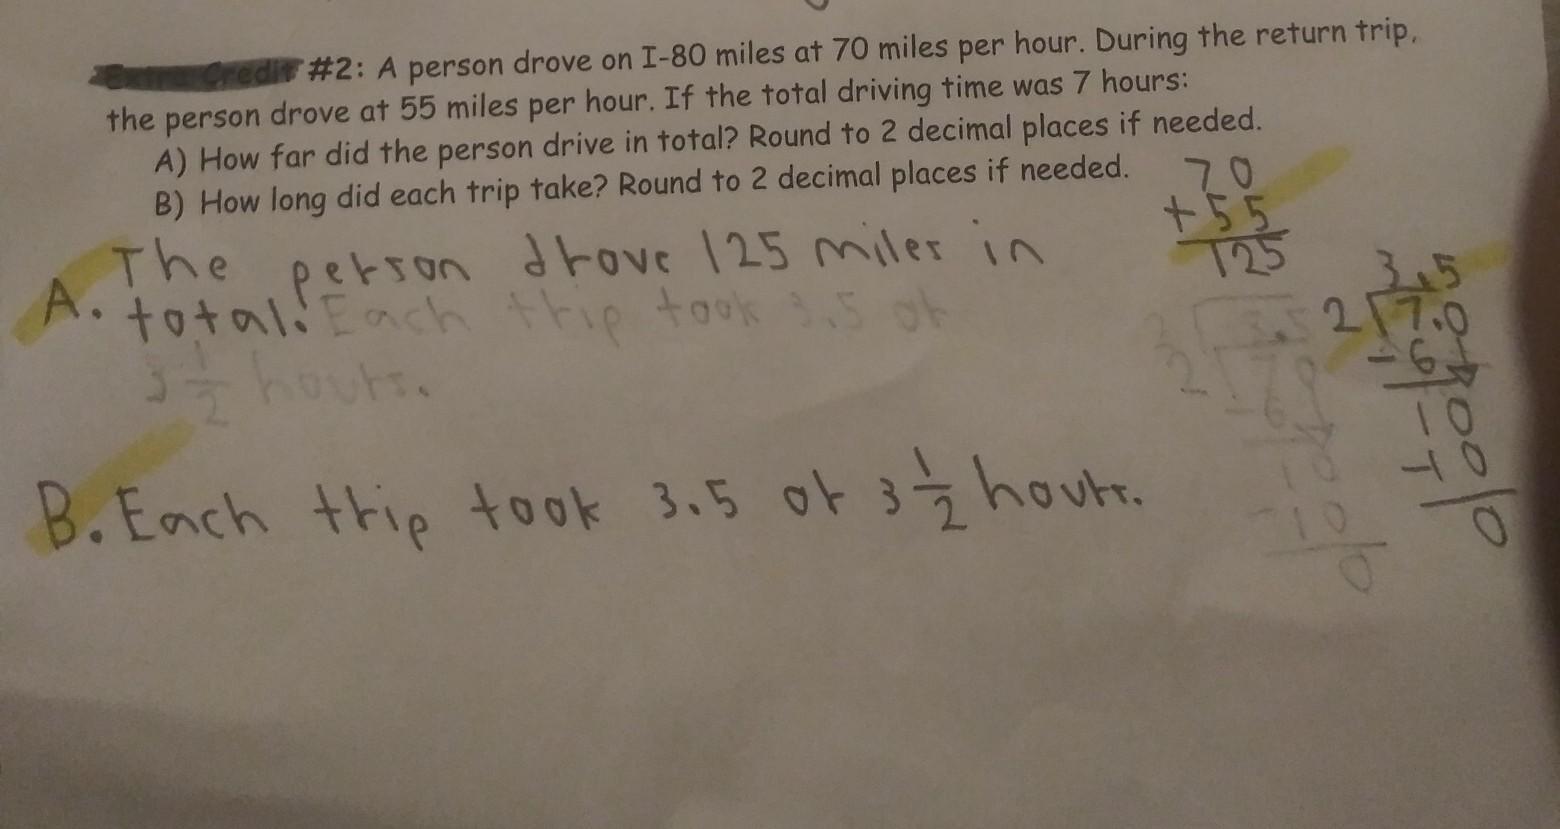 Extra Credit #2: A person drove on I-80 miles at 70 miles per hour. During the return trip,
the person drove at 55 miles per hour. If the total driving time was 7 hours:
A) How far did the person drive in total? Round to 2 decimal places if needed.
B) How long did each trip take? Round to 2 decimal places if needed.
70
+55
125
A. The person drove 125 miles in
total. Each trip took 3.5 or
3 1/2 hours.
3.5
2 7.0
-6
10
-10
0
3.5
2 70
-6
10
-10
0
B. Each trip took 3.5 or 3 1/2 hours.